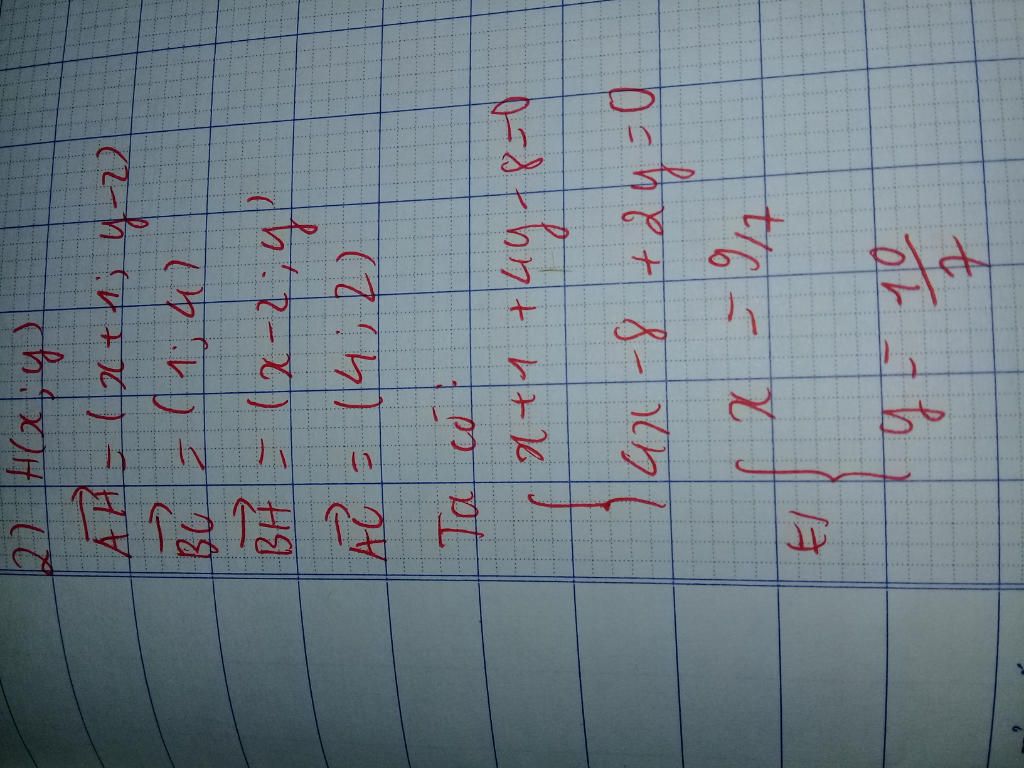 2) H(x;y)
AH = (x+1; y-2)
BC = (1; 4)
BH = (x-2; y)
AC = (4; 2)
Ta có:
{ x+1 + 4y - 8=0
4x - 8 + 2y = 0
{ x = 9/7
y = 10/7